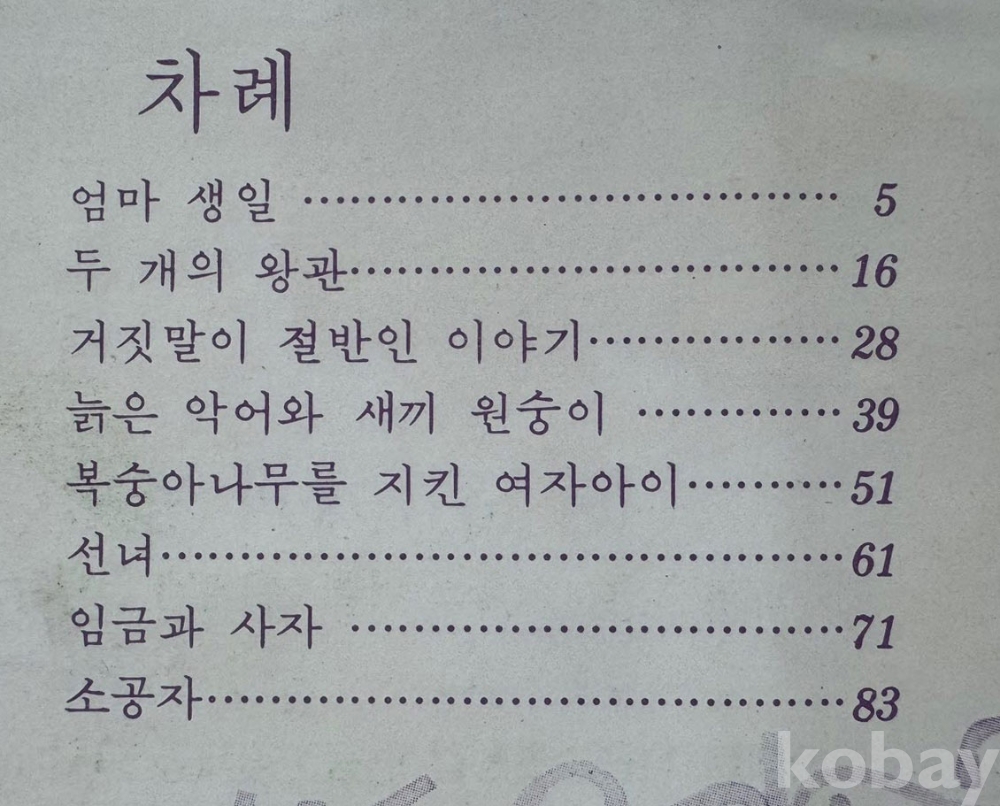 차례
엄마 생일 ……………………………… 5
두 개의 왕관……………………………16
거짓말이 절반인 이야기………………28
늙은 악어와 새끼 원숭이 ……………39
복숭아나무를 지킨 여자아이…………51
선녀………………………………………61
임금과 사자 ……………………………71
소공자……………………………………83
kobay